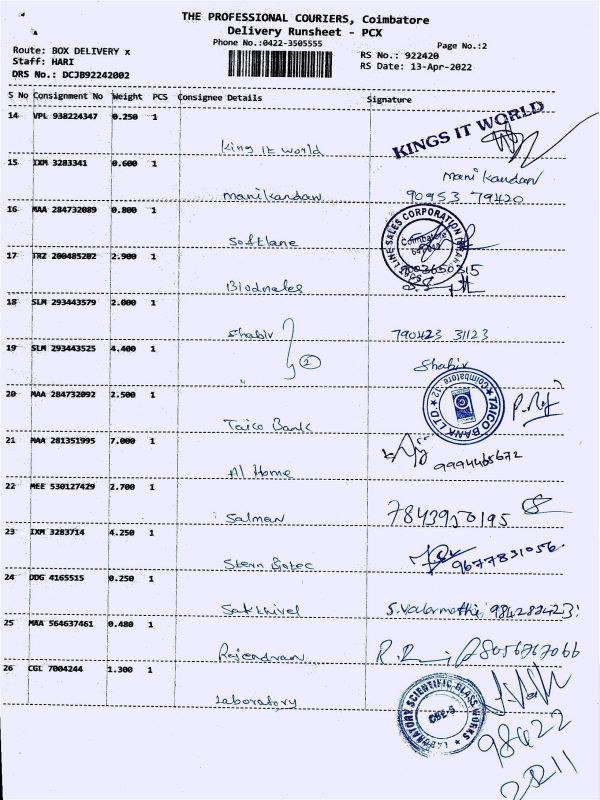 THE PROFESSIONAL COURIERS, Coimbatore
Delivery Runsheet - PCX
Phone No.:0422-3505555
Page No.:2
Route: BOX DELIVERY x
Staff: HARI
DRS No.: DCJB92242002
RS No.: 922420
RS Date: 13-Apr-2022
S No Consignment No Weight PCS Consignee Details Signature
14 VPL 938224347 0.250 1
King IT world
KINGS IT WORLD
15 IXM 3283341 0.600 1
manikandan
Manikandan
90953 79420
16 MAA 284732089 0.800 1
Softlane
Coimbatore
17 TRZ 200485202 2.900 1
18 SLM 293443579 2.000 1
Shabir
790423 31123
19 SLM 293443525 4.400 1
"
2
Shabir
20 MAA 284732092 2.500 1
Taico Bank
TAICO BANK LTD
Coimbatore-12
21 MAA 281351995 7.000 1
Al Home
9994465672
22 MEE 530127429 2.700 1
Salman
7843950195
23 IXM 3283714 4.250 1
9677831056
24 DDG 4165515 0.250 1
Sakthivel
25 MAA 564637461 0.480 1
Rajendran
8056767066
26 CGL 7004244 1.300 1
Laboratory
LABORATORY SCIENTIFIC GLASS WORKS
98422